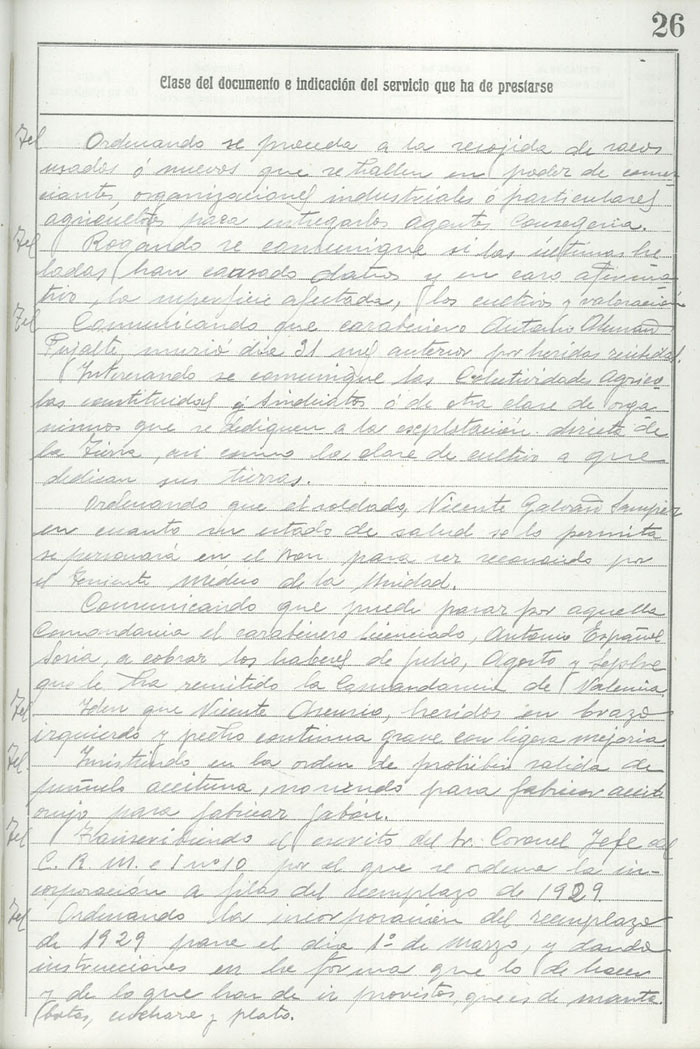 26
Clase del documento e indicación del servicio que ha de prestarse
Tel Ordenando se proceda a la recojida de sacos
usados ó nuevos que se hallen en poder de comer-
ciantes, organizaciones industriales ó particulares
agricultores para entregarlos agentes Consegeria.
Tel Rogando se comunique si las últimas he-
ladas han causado daños y en caso afirma-
tivo, la superficie afectada, los cultivos y valoración
Tel Comunicando que carabinero Antonio Alemañ
murió dia 31 mes anterior por heridas recibidas.
Interesando se comunique las Colectividades Agrico-
las constituidas ó Sindicatos ó de otra clase de orga-
nismos que se dediquen a la explotación directa de
la tierra, asi como la clase de cultivo a que
dedican sus tierras.
Ordenando que el soldado, Vicente Galvañ Semper
en cuanto su estado de salud se lo permita
se personará en el Bon. para ser reconocido por
el Teniente Médico de la Unidad.
Comunicando que puede pasar por aquella
Comandancia el carabinero licenciado, Antonio Español
Soria, a cobrar los haberes de julio, Agosto y Sepbre
que le ha remitido la Comandancia de Valencia
Tel Idem que Vicente Asensio, heridos en brazo
izquierdo y pecho continua grave con ligera mejoria.
Tel Insistiendo en la orden de prohibir salida de
aceituna, no siendo para fabricar aceite
orujo para fabricar jabón.
Tel Transcribiendo el escrito del Sr. Coronel Jefe del
C. R. M. e I nº 10 por el que se ordena la in-
corporación a filas del reemplazo de 1929
Tel Ordenando la incorporación del reemplazo
de 1929 para el dia 1º de Marzo, y dando
instrucciones en la forma que lo de hacer
y de lo que han de ir provistos, que es de manta
botas, cuchara y plato.